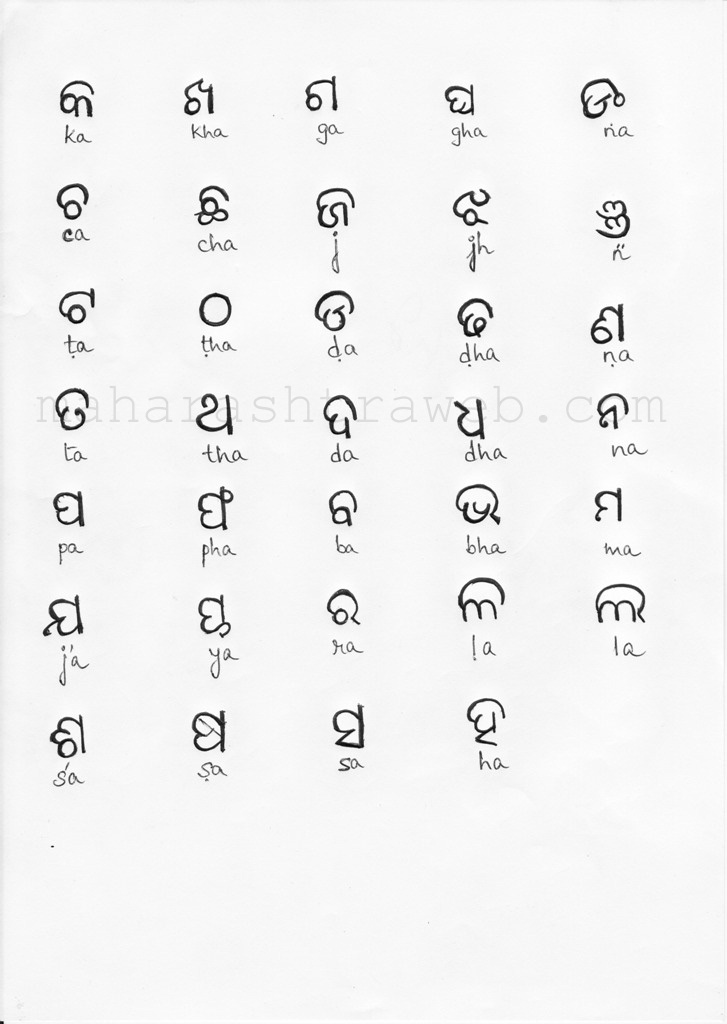 କ ଖ ଗ ଘ ଙ
ka kha ga gha ṅa
ଚ ଛ ଜ ଝ ଞ
ca cha j jh ñ
ଟ ଠ ଡ ଢ ଣ
ṭa ṭha ḍa ḍha ṇa
maharashtraweb.com
ତ ଥ ଦ ଧ ନ
ta tha da dha na
ପ ଫ ବ ଭ ମ
pa pha ba bha ma
ଯ ୟ ର ଳ ଲ
j'a ya ra ḷa la
ଶ ଷ ସ ହ
śa ṣa sa ha